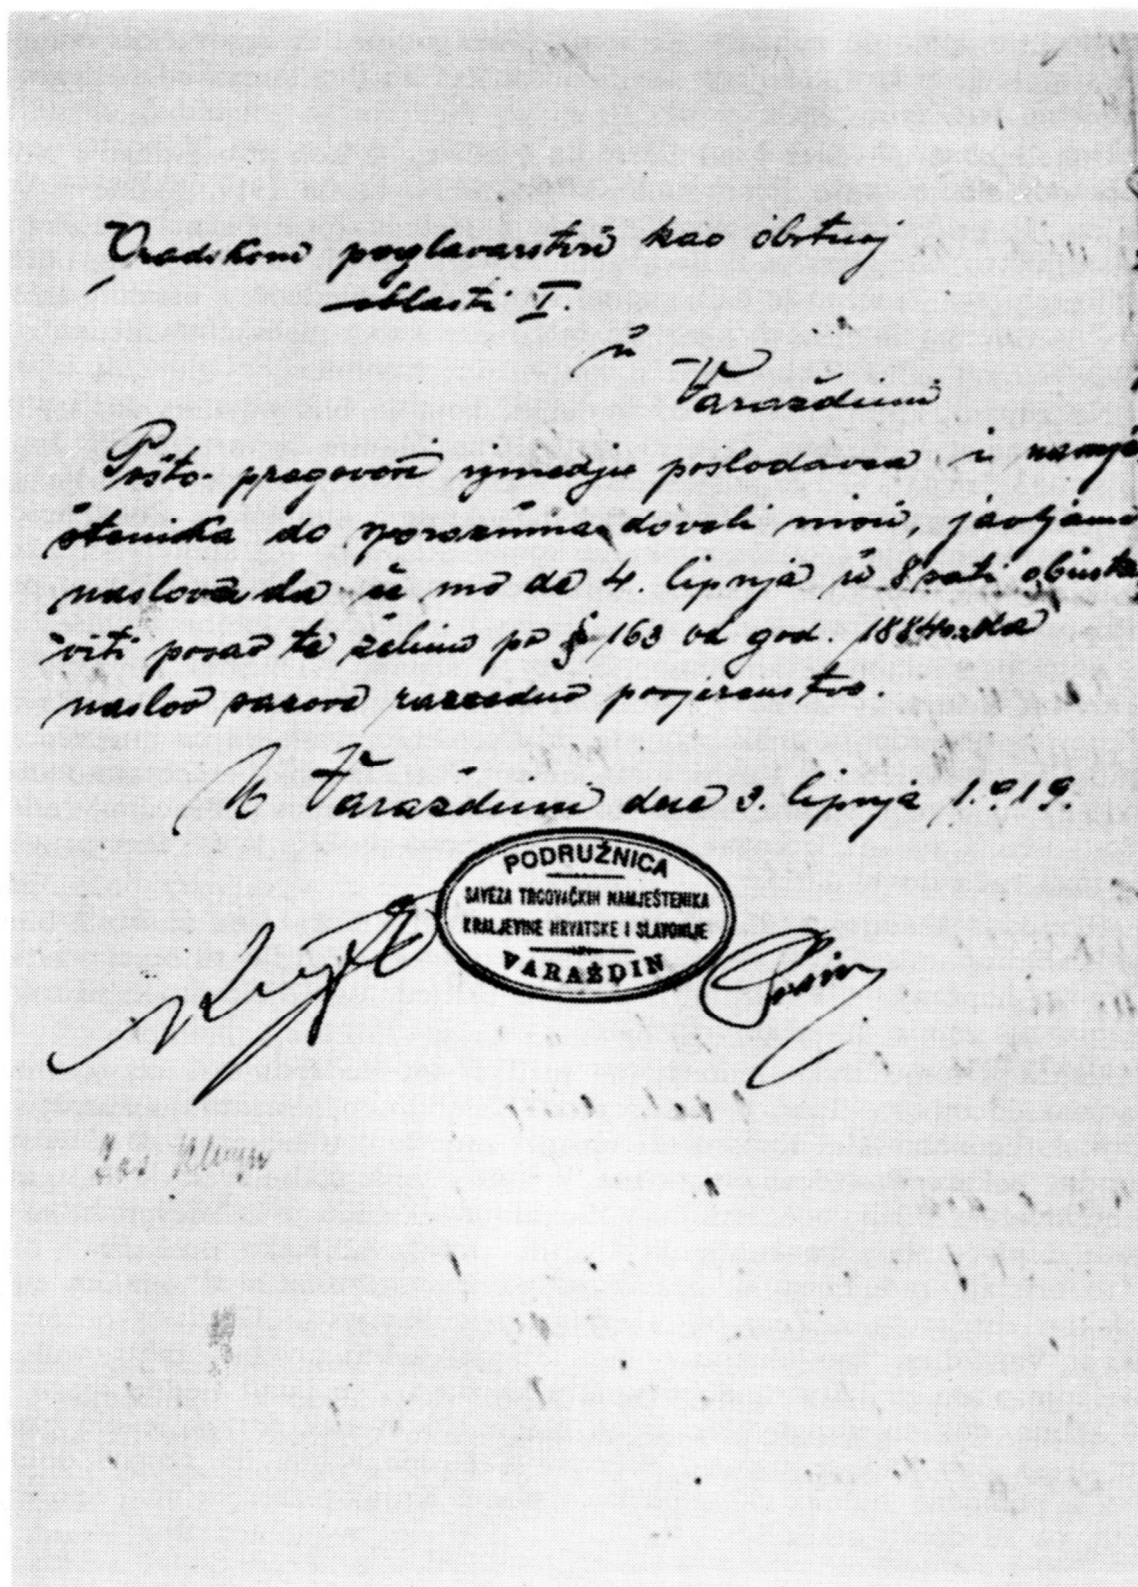 Gradskom poglavarstvu kao obrtnoj
oblasti I.
u
Varaždinu
Pošto pregovori izmedju poslodavca i namje
štenika do sporazuma doveli nisu, javljamo
naslovu da će mo da 4. lipnja u 8 sati obusta
viti posao te želimo po § 163 od god. 1884 da
naslov sazove razsudno povjerenstvo.
U Varaždinu dne 3. lipnja 1919.
PODRUŽNICA
SAVEZA TRGOVAČKIH NAMJEŠTENIKA
KRALJEVINE HRVATSKE I SLAVONIJE
VARAŽDIN